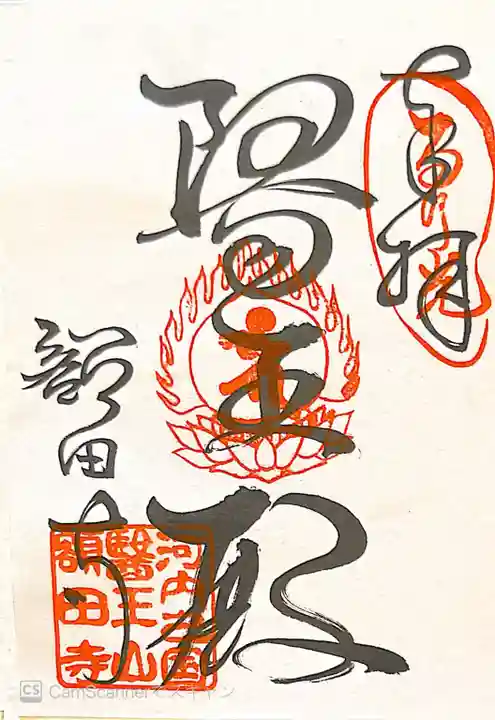 奉拝
醫王殿
額田寺
河内之国
醫王山
額田寺
CS CamScannerでスキャン